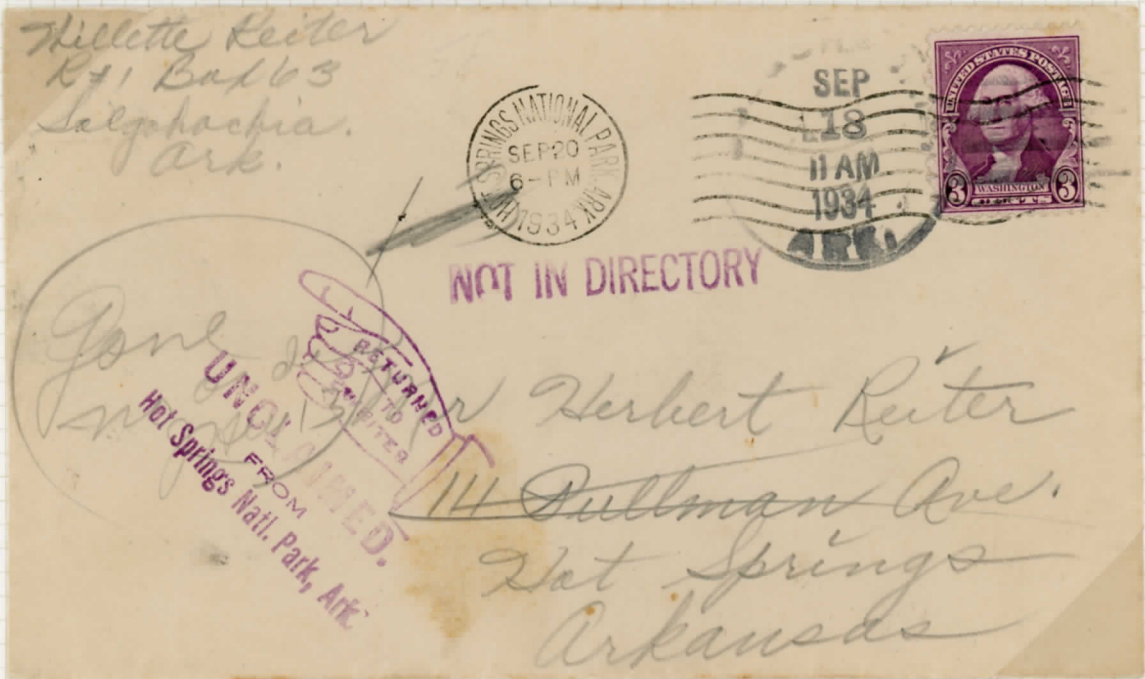 Willette Reiter
R#1 Box 63
Ark.
HOT SPRINGS NATIONAL PARK, ARK.
SEP 20
6-PM
1934
SEP
18
11 AM
1934
ARK.
UNITED STATES POSTAGE
3 WASHINGTON 3
CENTS
NOT IN DIRECTORY
Gone
RETURNED
TO
WRITER
UNCLAIMED.
FROM
Hot Springs Natl. Park, Ark.
Mr Herbert Reiter
114 Pullman Ave.
Hot Springs
Arkansas